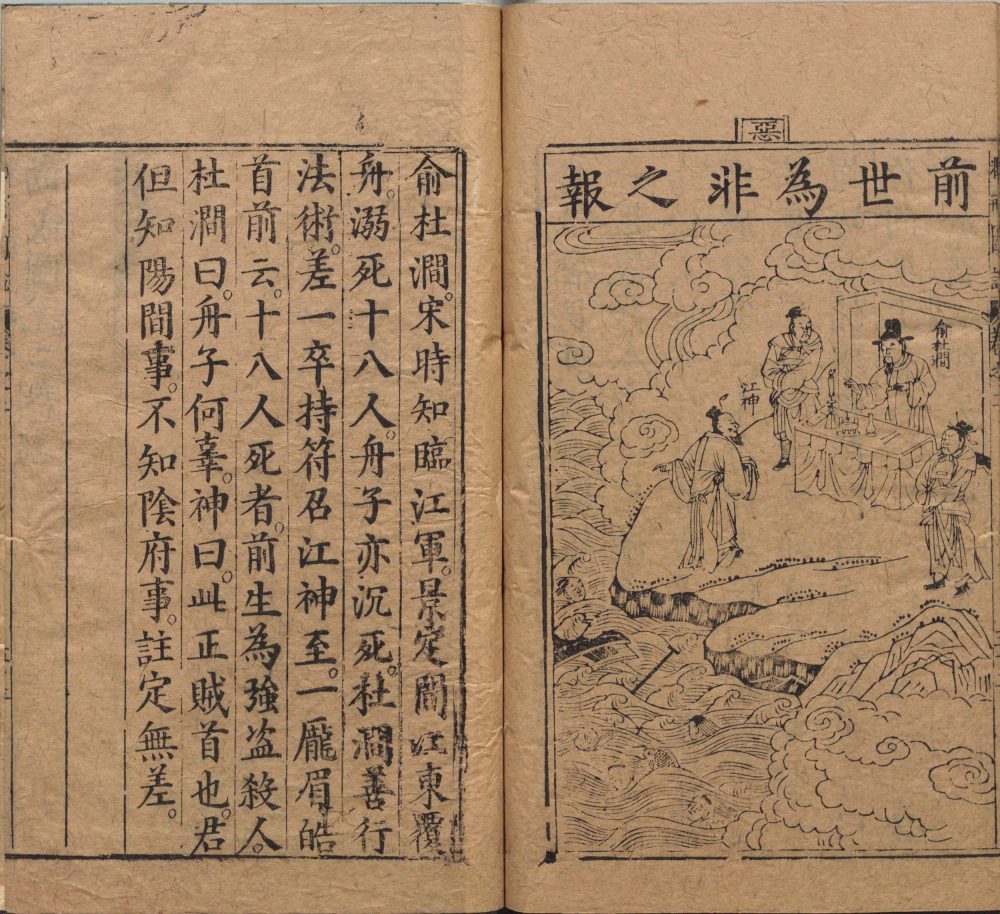 惡
前世為非之報
俞杜澗
江神
俞杜澗。宋時知臨江軍。景定間江東覆
舟。溺死十八人。舟子亦沉死。杜澗善行
法術。差一卒持符召江神至。一龎眉皓
首前云。十八人死者。前生為強盗殺人。
杜澗曰。舟子何辜。神曰。此正賊首也。君
但知陽間事。不知陰府事。註定無差。